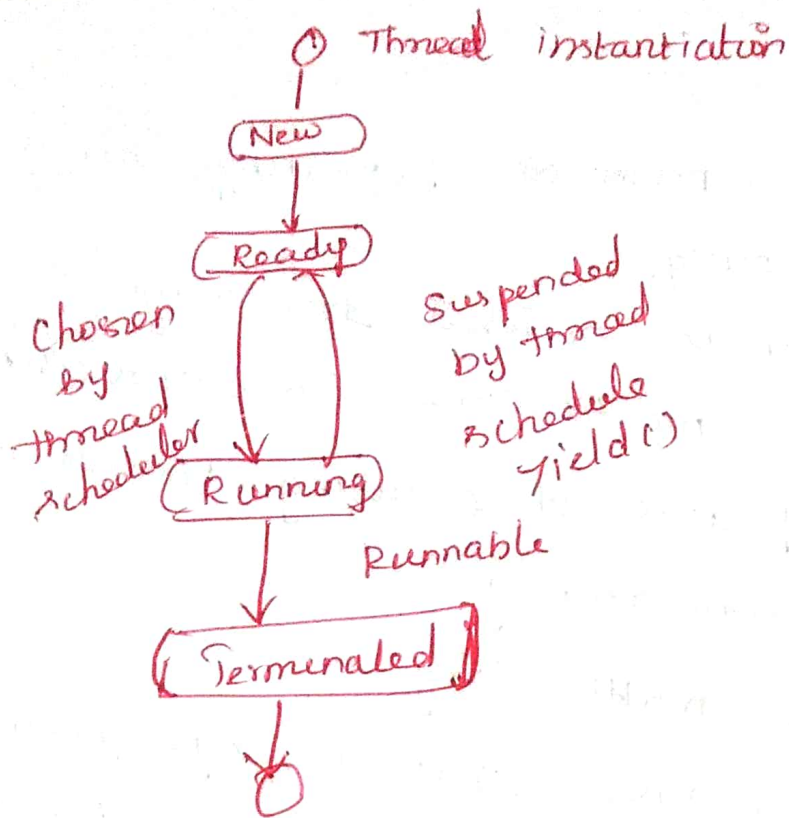 Thread instantiation
New
Ready
Chosen
by
thread
scheduler
Suspended
by thread
schedule
yield()
Running
Runnable
Terminated